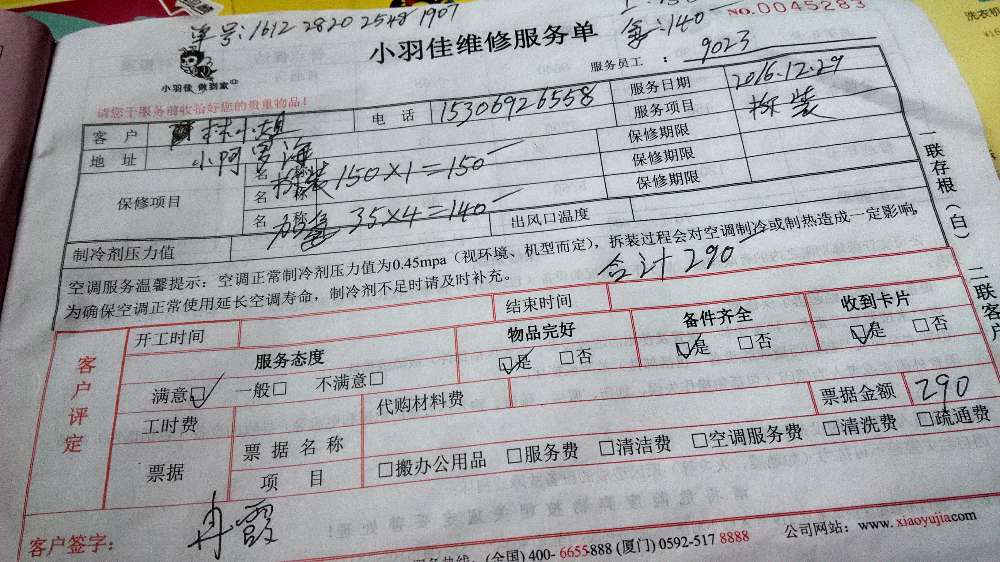 单号:1612 2820 2548 1907
140
NO.0045283
洗衣机
小羽佳维修服务单
小羽佳 做到家
服务员工 : 9023
请您于服务前收拾好您的贵重物品!
客 户 林小姐 电 话 15306926558 服务日期 2016.12.29
地 址 小阿罗海 服务项目 拆装
保修项目
名 称 拆装 150×1=150 保修期限
保修期限
名 称 35×4=140 保修期限
制冷剂压力值 出风口温度
空调服务温馨提示:空调正常制冷剂压力值为0.45mpa(视环境、机型而定),拆装过程会对空调制冷或制热造成一定影响,
为确保空调正常使用延长空调寿命,制冷剂不足时请及时补充。
合计290
一联存根(白)
二联客户
客户评定
开工时间 结束时间
服务态度 物品完好 备件齐全 收到卡片
满意☑ 一般□ 不满意□ ☑是 □否 ☑是 □否 ☑是 □否
工时费 代购材料费 票据金额 290
票据 票据名称
项 目 □搬办公用品 □服务费 □清洁费 □空调服务费 □清洗费 □疏通费
客户签字: 冉霞
服务热线: (全国) 400-6655-888 (厦门) 0592-517 8888 公司网站:www.xiaoyujia.com